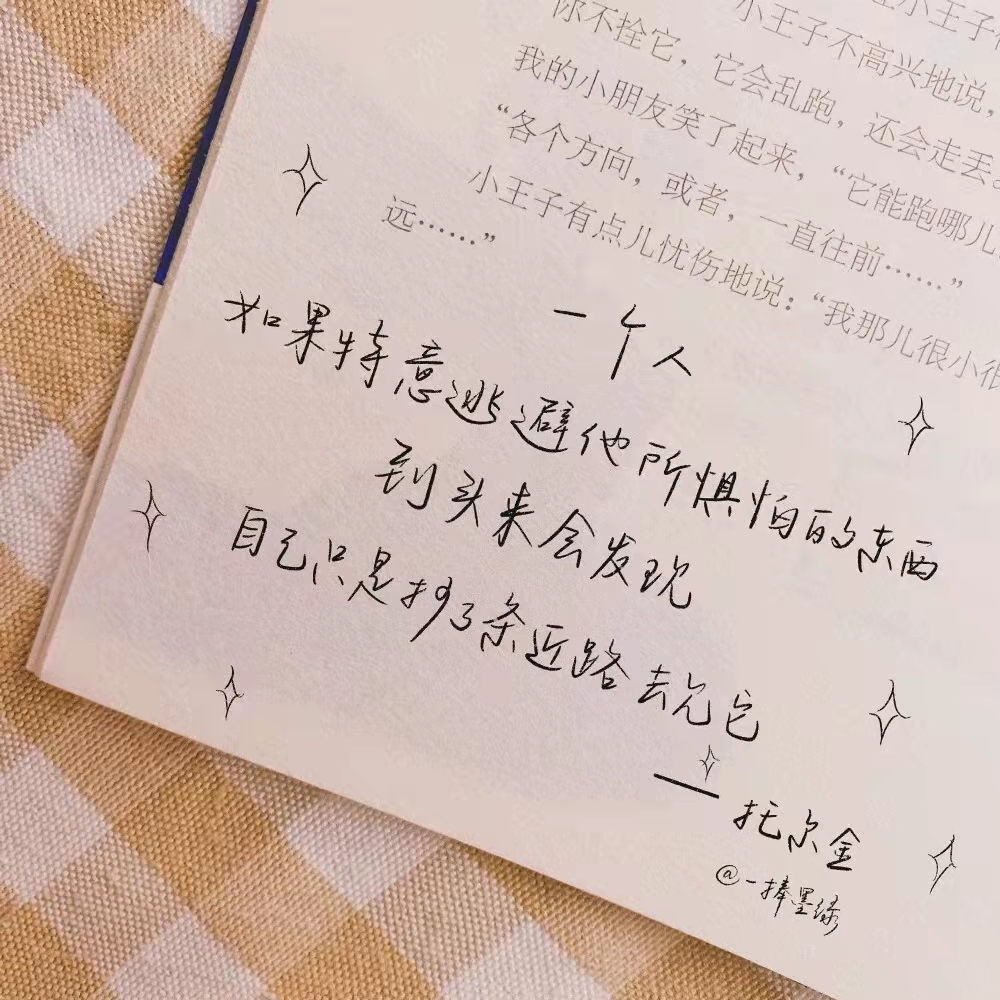 小王子
小王子不高兴地说，
你不拴它，它会乱跑，还会走丢
我的小朋友笑了起来，“它能跑哪儿
“各个方向，或者，一直往前……”
小王子有点儿忧伤地说：“我那儿很小很
远……”
一个人
如果特意逃避他所惧怕的东西
到头来会发现
自己只是抄了条近路去见它
——托尔金
@一捧墨绿